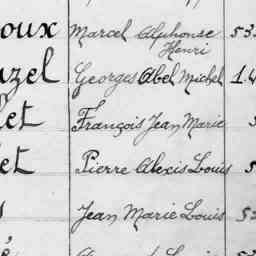 oux Marcel Alphonse 53
Henri
uzel Georges Abel Michel 1.4
let François Jean Marie 5
et Pierre Alexis Louis 5
Jean Marie Louis 53